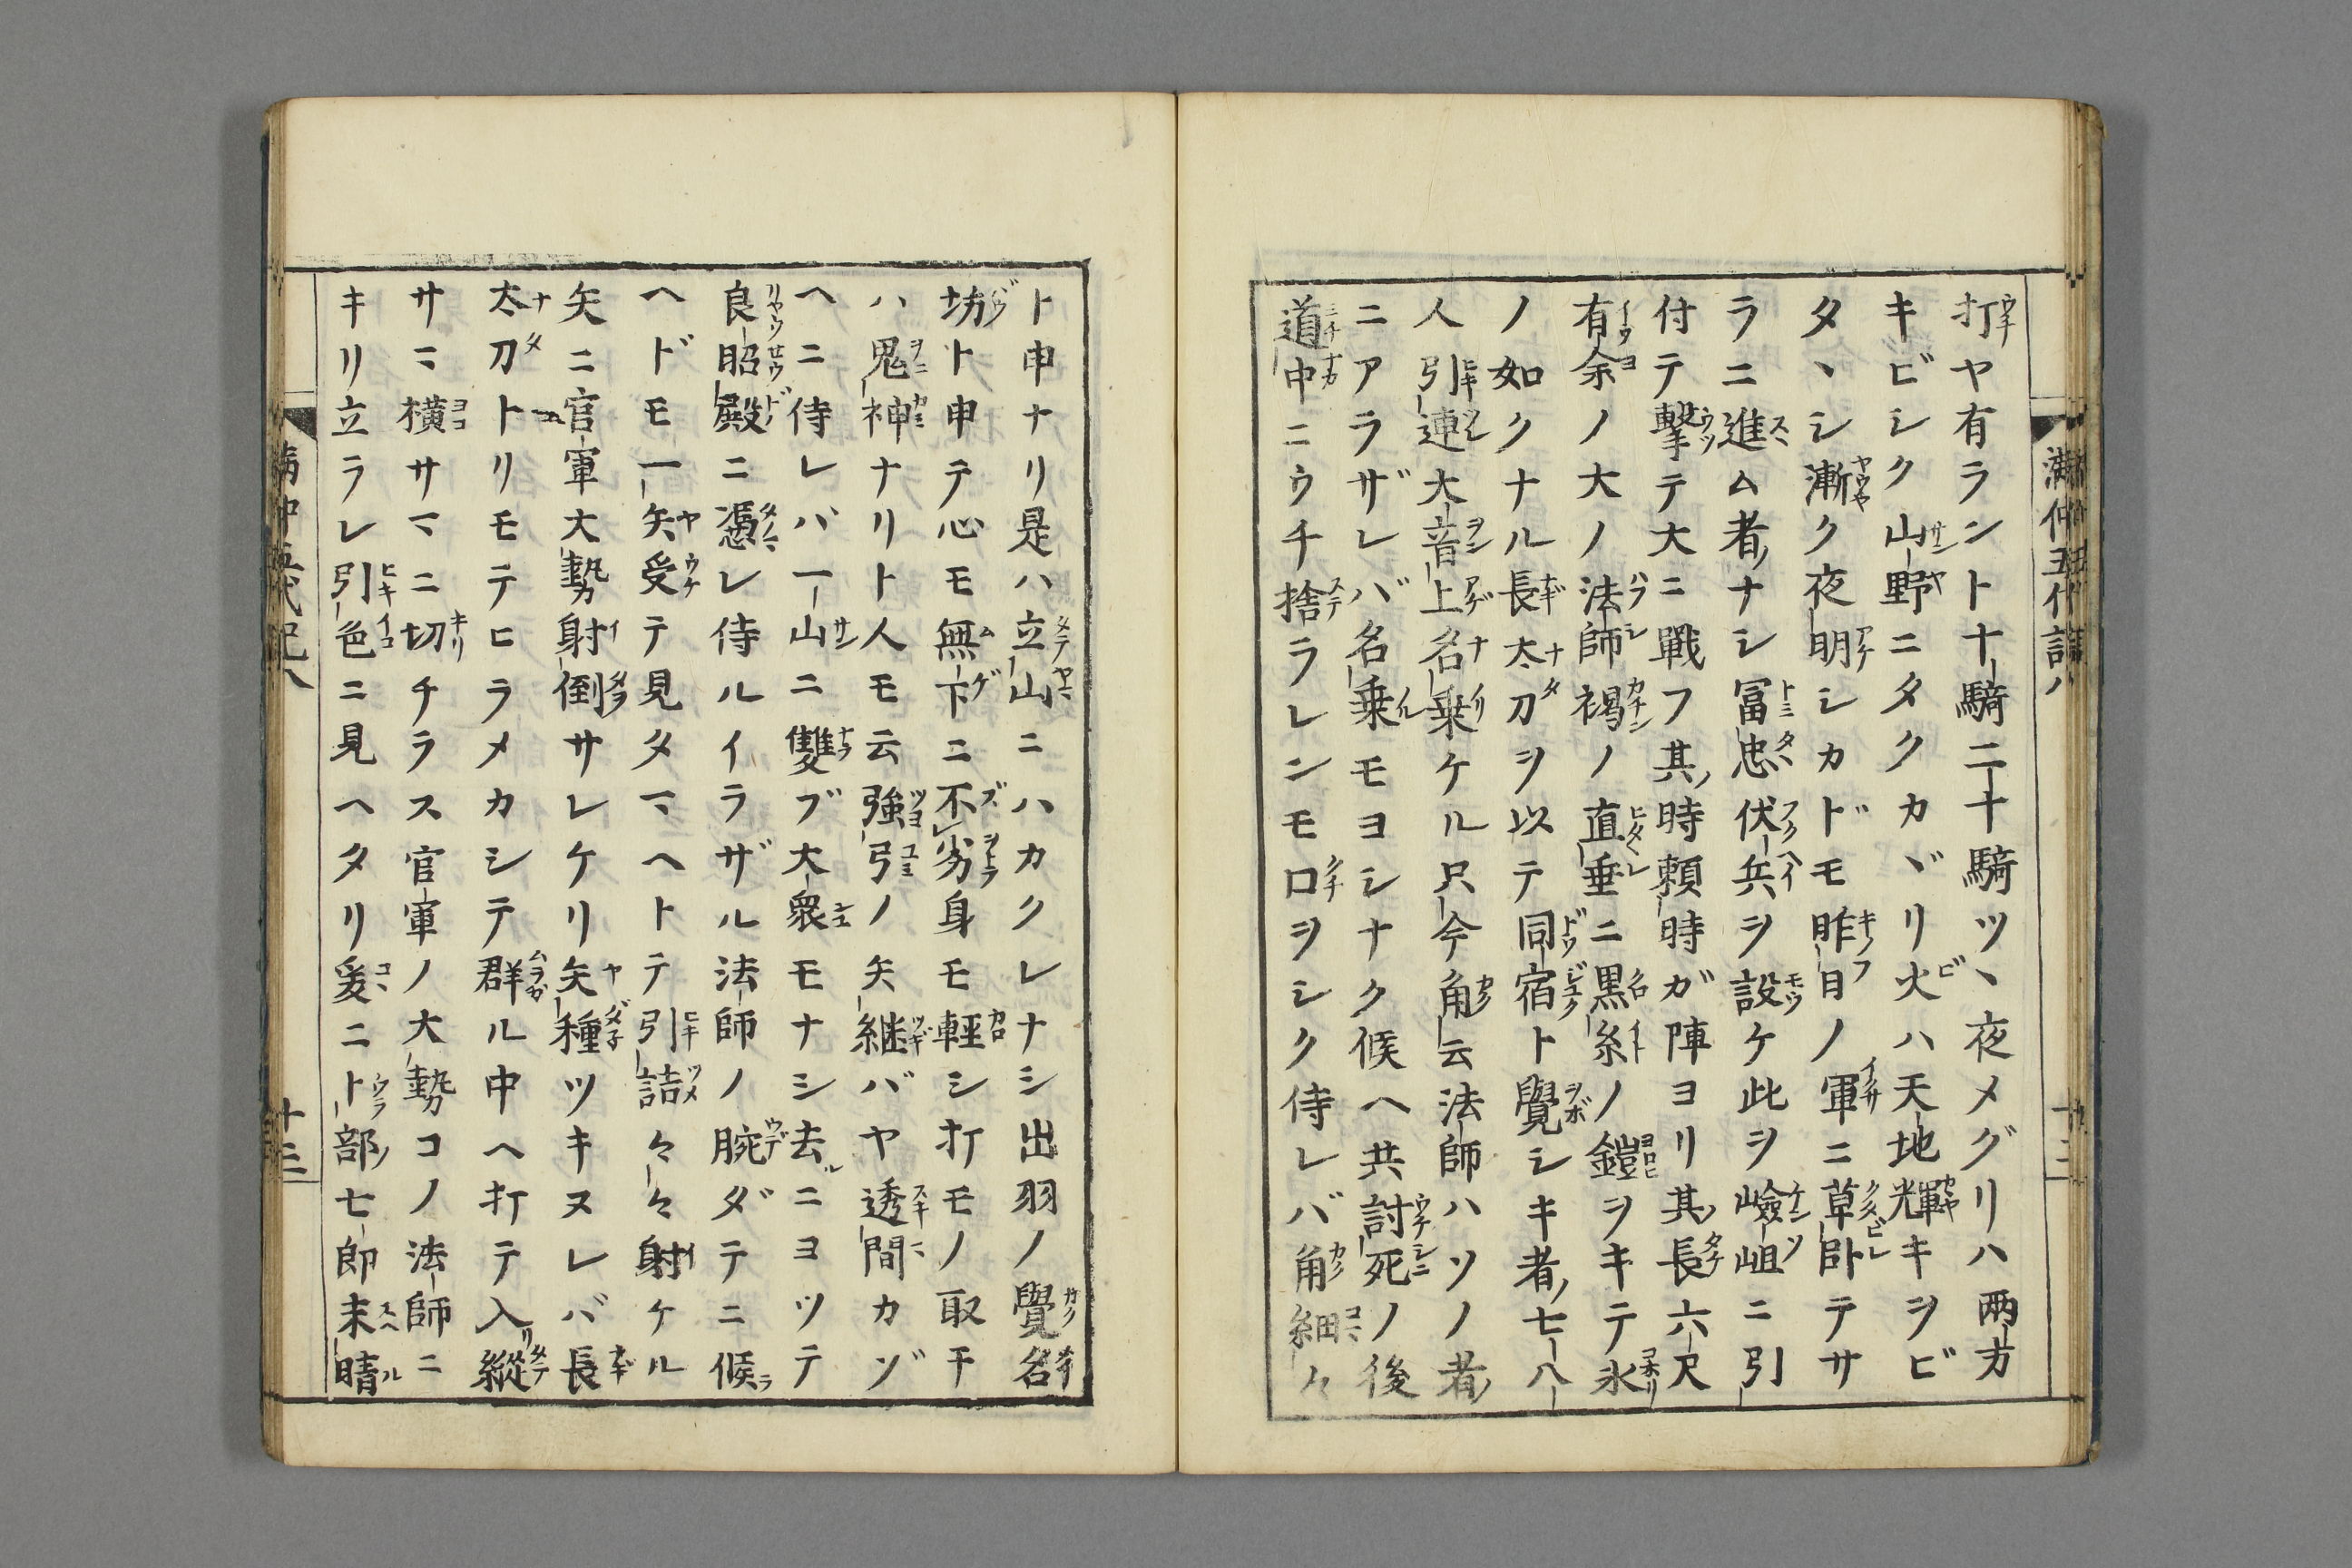 打ヤ有ラント十騎二十騎ツヽ夜メグリハ両方
キビシク山野ニタクカヾリ火ハ天地輝キヲビ
タヽシ漸ク夜明シカドモ昨日ノ軍ニ草臥テサ
ラニ進ム者ナシ冨忠伏兵ヲ設ケ此ヲ嶮岨ニ引
付テ撃テ大ニ戰フ其時頼時ガ陣ヨリ其長六尺
有余ノ大ノ法師褐ノ直垂ニ黒糸ノ鎧ヲキテ氷
ノ如クナル長太刀ヲ以テ同宿ト覺シキ者七八
人引連大音上名乗ケル只今角云法師ハソノ者
ニアラザレバ名乗モヨシナク候ヘ共討死ノ後
道中ニウチ捨ラレンモ口ヲシク侍レバ角細々
ト申ナリ是ハ立山ニハカクレナシ出羽ノ覺名
坊ト申テ心モ無下ニ不劣身モ輕シ打モノ取テ
ハ鬼神ナリト人モ云強弓ノ矢継バヤ透間カゾ
ヘニ侍レバ一山ニ雙ブ大衆モナシ去ニヨツテ
良昭殿ニ憑レ侍ルイラザル法師ノ腕ダテニ候
ヘドモ一矢受テ見タマヘトテ引詰々々射ケル
矢ニ官軍大勢射倒サレケリ矢種ツキヌレバ長
太刀トリモテヒラメカシテ群ル中ヘ打テ入縱
サマ横サマニ切チラス官軍ノ大勢コノ法師ニ
キリ立ラレ引色ニ見ヘタリ爰ニト部七郎末晴
満仲五代記八
十三